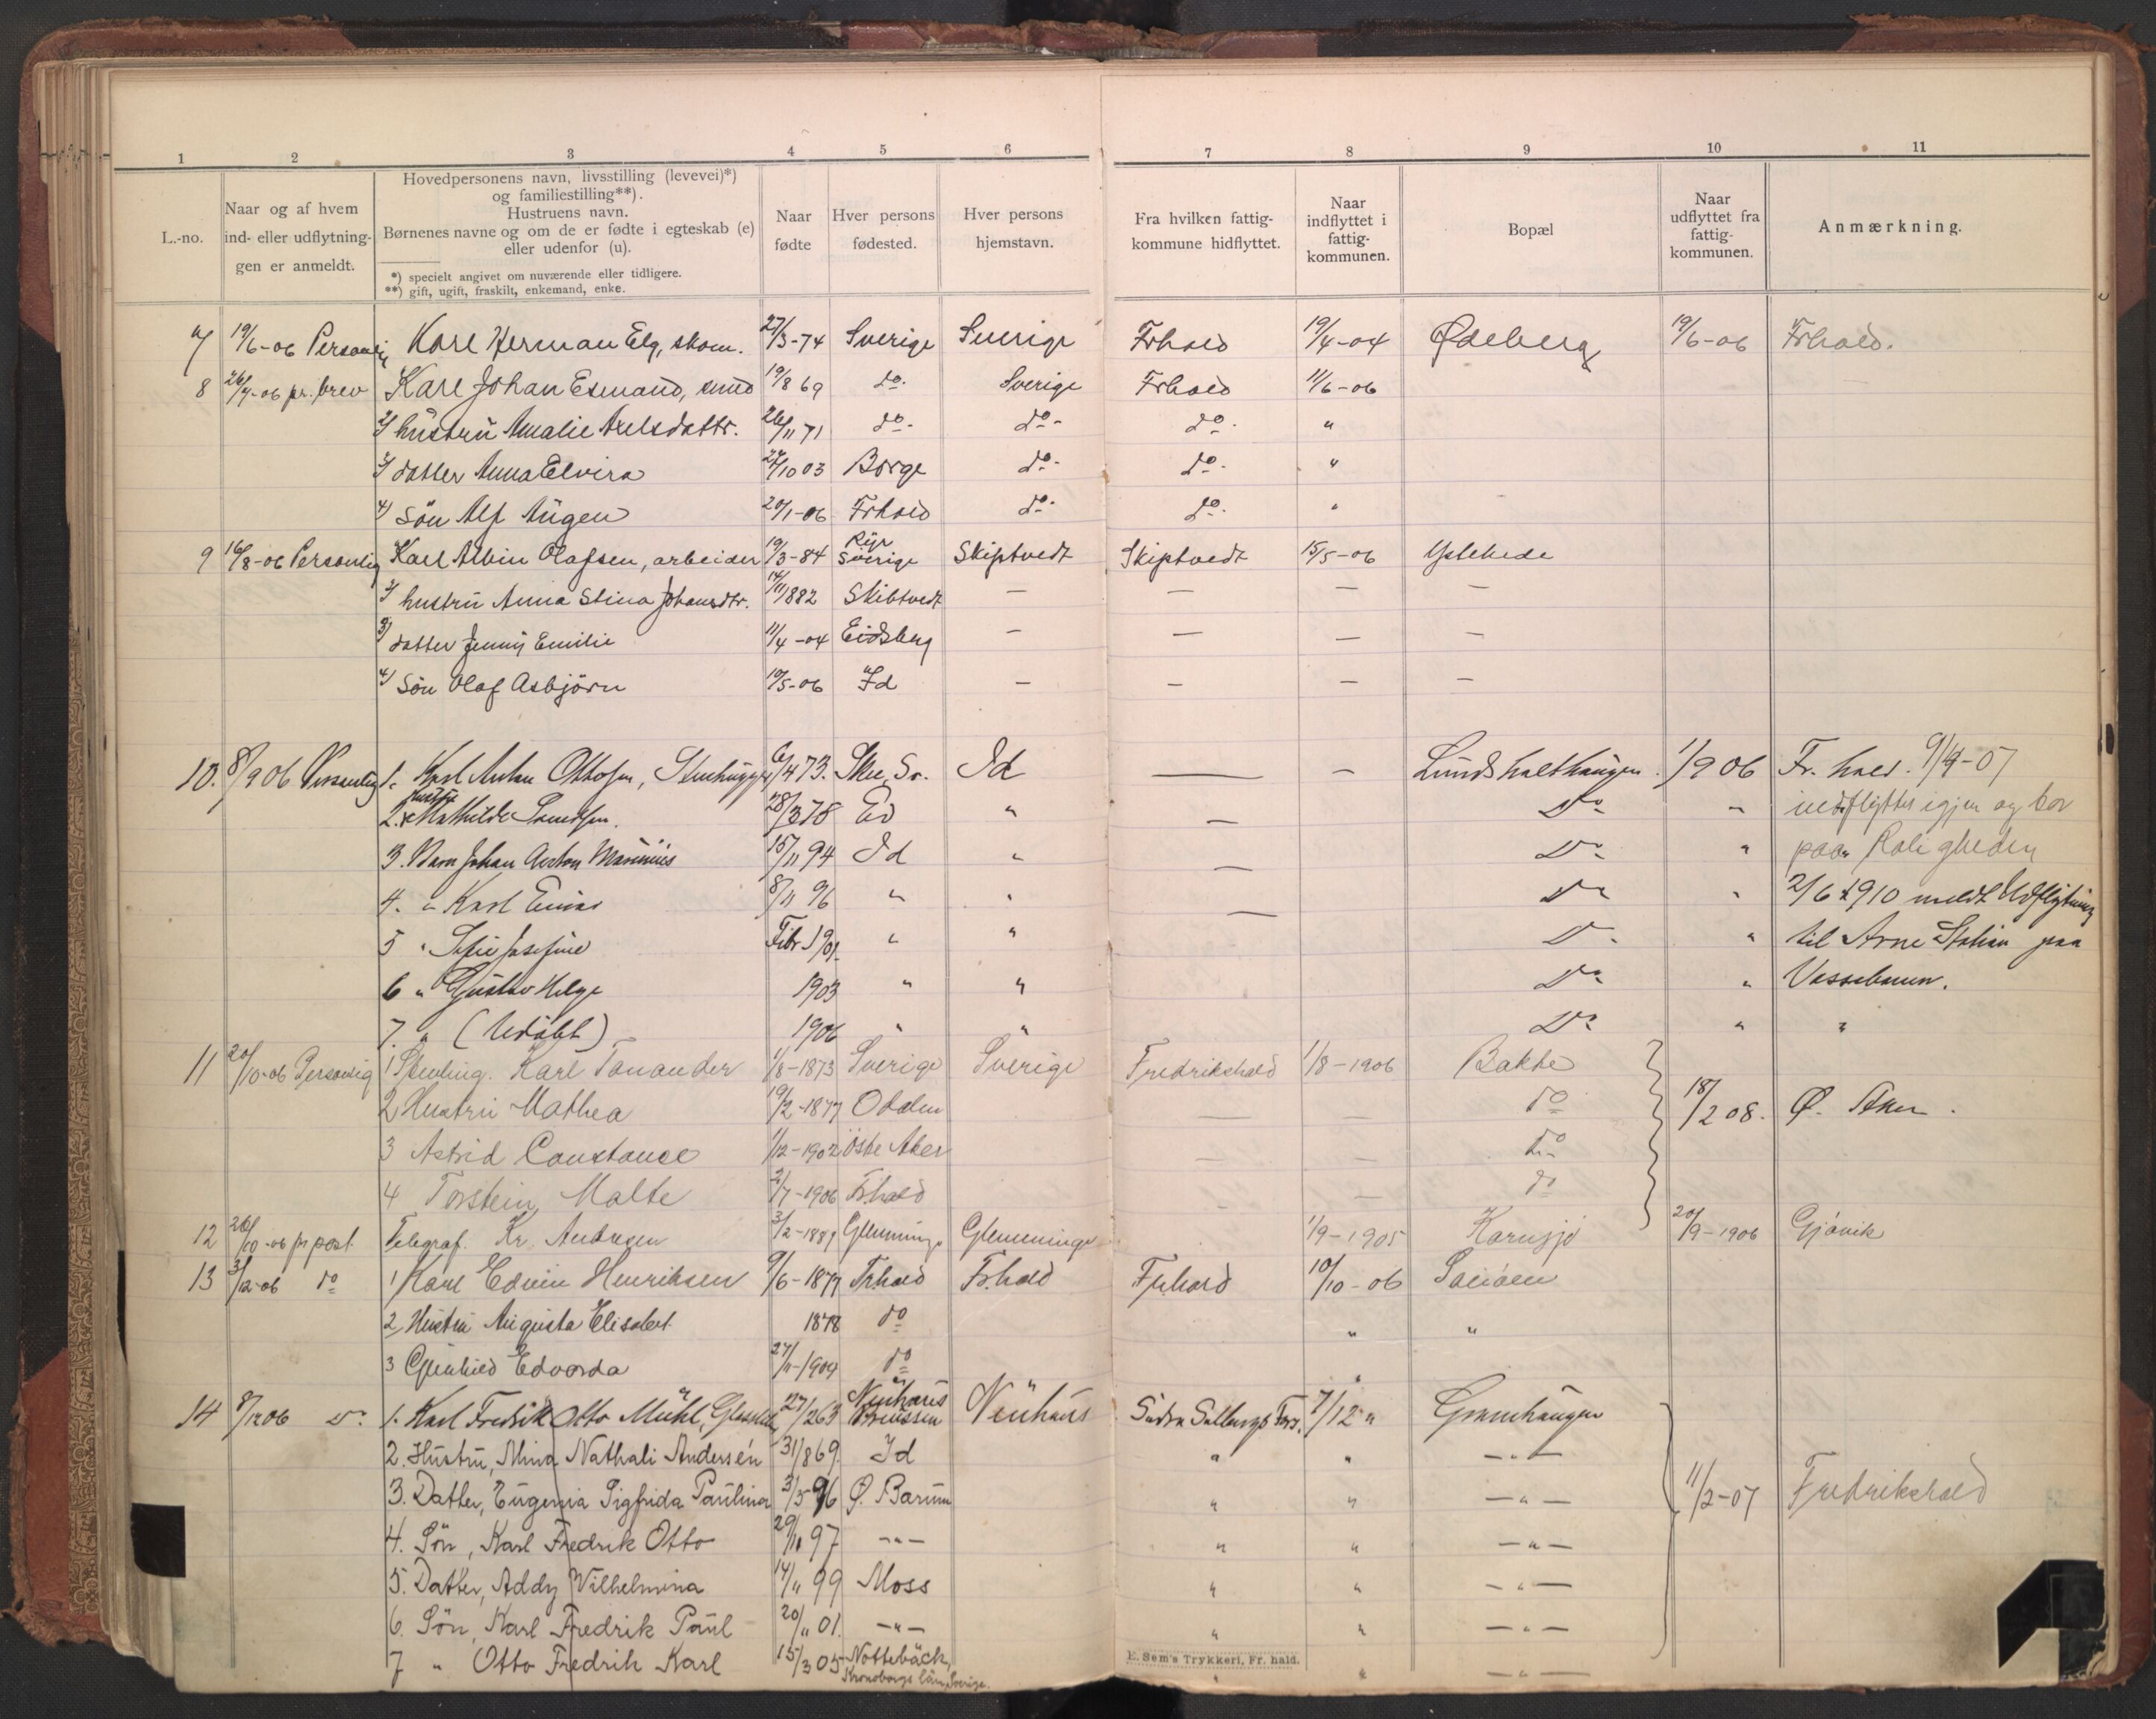 1 2 3 4 5 6 7 8 9 10 11
L.-no.
Naar og af hvem
ind- eller udflytnin-
gen er anmeldt.
Hovedpersonens navn, livsstilling (levevei)*)
og familiestilling**).
Hustruens navn.
Børnenes navne og om de er fødte i egteskab (e)
eller udenfor (u).
*) specielt angivet om nuværende eller tidligere.
**) gift, ugift, fraskilt, enkemand, enke.
Naar
fødte
Hver persons
fødested.
Hver persons
hjemstavn.
Fra hvilken fattig-
kommune hidflyttet.
Naar
indflyttet i
fattig-
kommunen.
Bopæl
Naar
udflyttet fra
fattig-
kommunen.
Anmærkning.
7 19/6-06 Personlig Karl Herman Elg, skom. 27/3-74 Sverige Sverige Frhald 19/4-04 Ødeberg 19/6-06 Frhald.
8 26/7-06 pr. brev Karl Johan Esmand, smed 19/8 69 do. Sverige Frhald 11/6-06
2) hustru Amalie Axelsdattr. 26/11 71 do. do. do. "
3) datter Anna Elvira 24/10 03 Borge do. do. "
4) Søn Alf Augen 20/1-06 Frhald do. do. "
9 16/8-06 Personlig Karl Albin Olafsen, arbeider 19/3-84 Ryr Sverige Skiptvedt Skiptvedt 15/5-06 Ystehede
2) hustru Anna Stina Johansdtr. 14/11 1882 Skibtvedt — — — —
3) datter Jenny Emilie 11/4-04 Eidsberg — — — —
4) Søn Olaf Asbjörn 19/5-06 Id — — — —
10. 8/9 06 Personlig 1. Karl Anton Ottosen, Stenhugger 6/4 73. Skee, Sv. Id — — Lundsholthaugen. 1/9 06 Fr.hald. 9/4-07
hustru
2. Mathilde 28/3 78 Ed " — Do " indflyttet igjen og bor
3. Barn Johan Anton Marinius 15/11 94 Id " — Do " paa Roligheden
4. " Karl Einar 8/11 96 " " — Do " 2/6 1910 meldt Udflytning
5 " Sofie Josefine Febr 1901. " " Do " til Arne Station paa
6 " Gustav Helge 1903 " " Do " Vossebanen.
7. " (Udøbt) 1906 " " Do " "
11 20/10-06 Personlig 1 Karl Tanander 1/8-1873 Sverige Sverige Fredrikshald 1/8-1906 Bakke
2 Hustru Mathea 19/2-1877 Odalen — — do 18/2 08. Ø. Aker.
3 Astrid Constance 1/12-1902 Östre Aker — — do
4 Torstein Malte 2/7-1906 Frhald — — do
12 26/10-06 pr post Telegraf. Kr. Andresen 3/2-1889 Glemminge Glemminge 1/9-1905 Kornsjø 20/9-1906 Gjövik
13 3/12-06 do 1 Karl Edvin Henriksen 9/6-1877 Frhald Frhald Frhald 10/10-06 Sauøen
2 Hustru Augusta Elisabet 1878 do " "
3 Gunhild Edvarda 27/11-1904 do "
14 8/12 06 do 1. Karl Fredrik Otto Mühl, 27/2 63 Neuhaus Preussen Neuhaus Södra Sallerup 7/12 " Grønhaugen
2. Hustru, Mina Nathali Andersén 31/8 69. Id " " — " —
3. Datter, Eugenia Sigfrida Paulina 3/5 96 Ø. Bærum " " — " — 11/2-07 Fredrikshald
4. Søn, Karl Fredrik Otto 29/11 97 — " — " " — " —
5. Datter, Addy Wilhelmina 14/11 99 Moss " " — " —
6. Søn, Karl Fredrik Paul 20/11 01. — " — " " — " —
7 " Otto Fredrik Karl 15/3 05 Nottebäck, " " — " —
Kronobergs län, Sverige.
E. Sem's Trykkeri, Fr. hald.